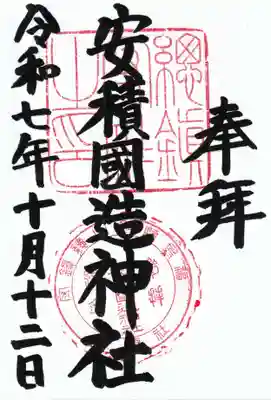 奉拝
安積國造神社
令和七年十月十二日